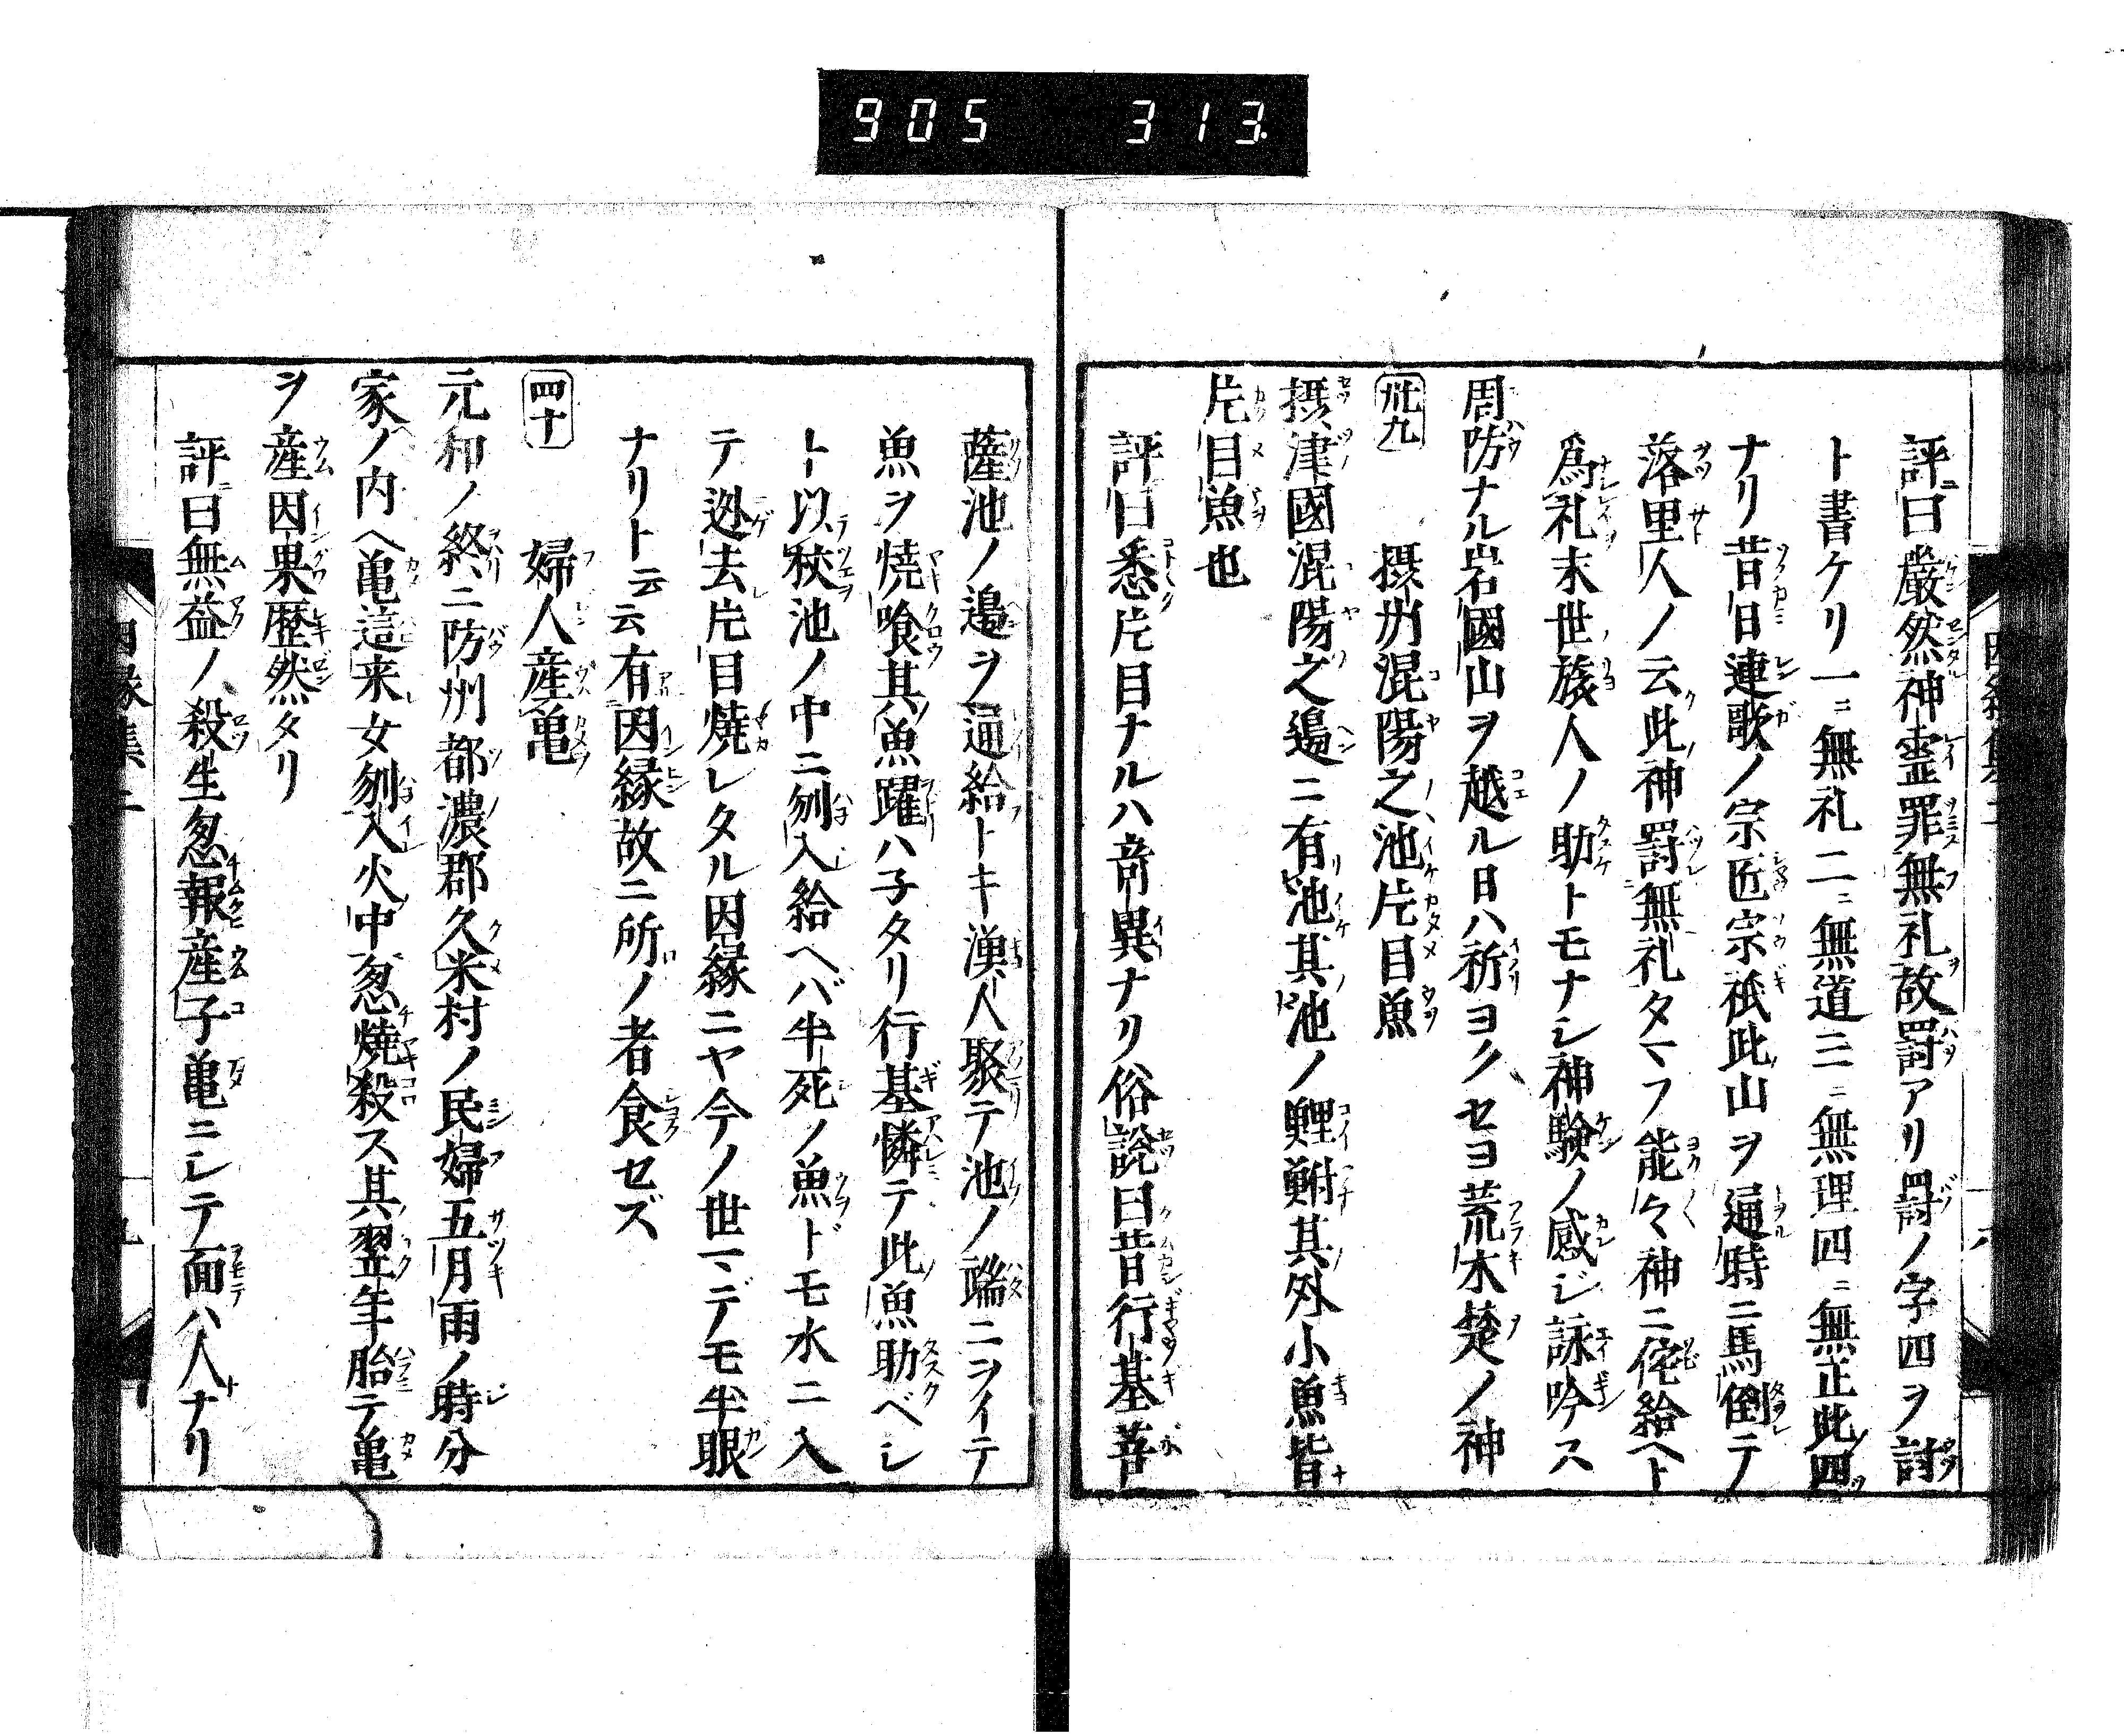 905 313.
評曰嚴然神霊罪無礼故罸アリ罸ノ字四ヲ討
ト書ケリ一ニ無礼二ニ無道三ニ無理四ニ無正此四ツ
ナリ昔日連歌ノ宗匠宗祇此山ヲ通時ニ馬倒テ
落里人ノ云此神罸無礼タマフ能々神ニ侘給ヘト
爲礼末世旅人ノ助トモナシ神驗ノ感ジ詠吟ス
周防ナル岩國山ヲ越ル日ハ祈ヨクセヨ荒木楚ノ神
卅九 摂州混陽之池片目魚
摂津國混陽之邉ニ有池其池ノ鯉鮒其外小魚皆
片目魚也
評曰悉片目ナルハ竒異ナリ俗說曰昔行基菩
薩池ノ邉ヲ通給トキ漁人聚テ池ノ端ニヲイテ
魚ヲ焼喰其魚躍ハ子タリ行基憐テ此魚助ベシ
ト以杖池ノ中ニ刎入給ヘバ半死ノ魚ドモ水ニ入
テ迯去片目焼レタル因縁ニヤ今ノ世マデモ半眼
ナリト云云有因縁故ニ所ノ者食セズ
四十 婦人産亀
元和ノ終ニ防州都濃郡久米村ノ民婦五月雨ノ時分
家ノ内ヘ亀這来女刎入火中怱焼殺ス其翌年胎テ亀
ヲ産因果歴然タリ
評曰無益ノ殺生怱報産子亀ニシテ面ハ人ナリ